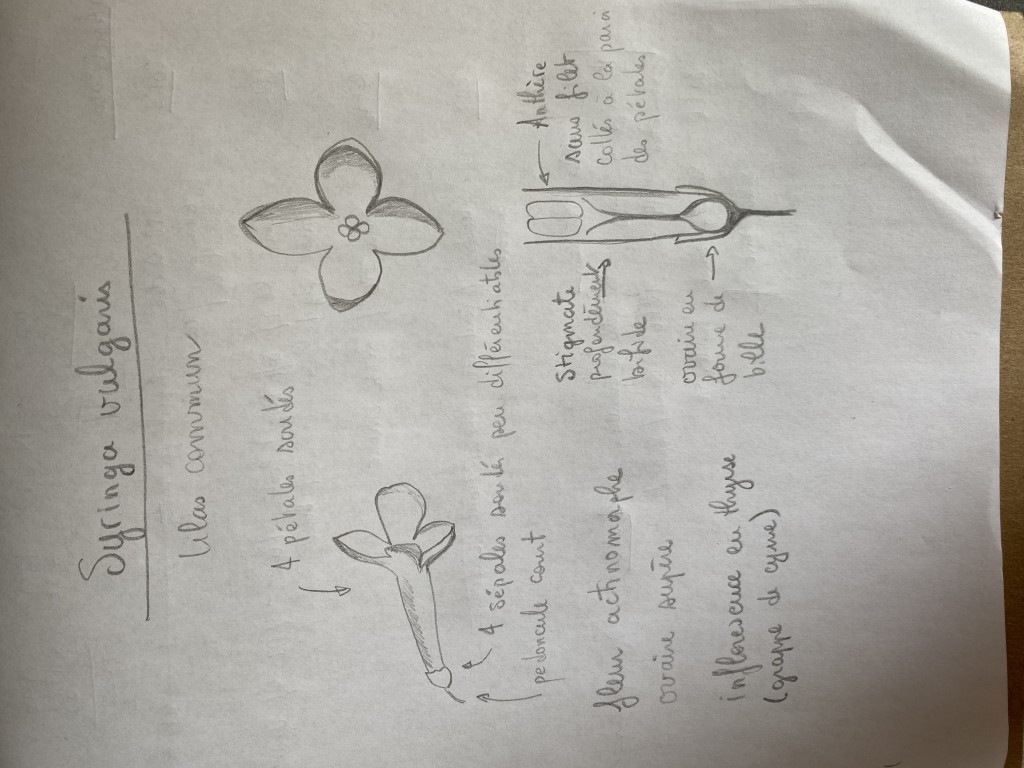 Syringa vulgaris
lilas commun
4 pétales soudés
4 sépales soudé peu différentiables
pedoncule court
Anthère
sans filet
collés à la paroi
des pétales
Stigmate
profondéments
bifide
ovaire en
forme de
bille
fleur actinomorphe
ovaire supère
inflorescence en thyrse
(grappe de cyme)